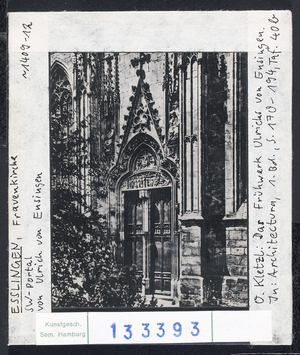 ~1409-12
ESSLINGEN, Frauenkirche
SW-Portal
von Ulrich von Ensingen
O. Kletzl: Das Frühwerk Ulrichs von Ensingen.
In: Architectura, 1. Bd. S. 170-194, Taf. 40b
Kunstgesch.
Sem. Hamburg
133393